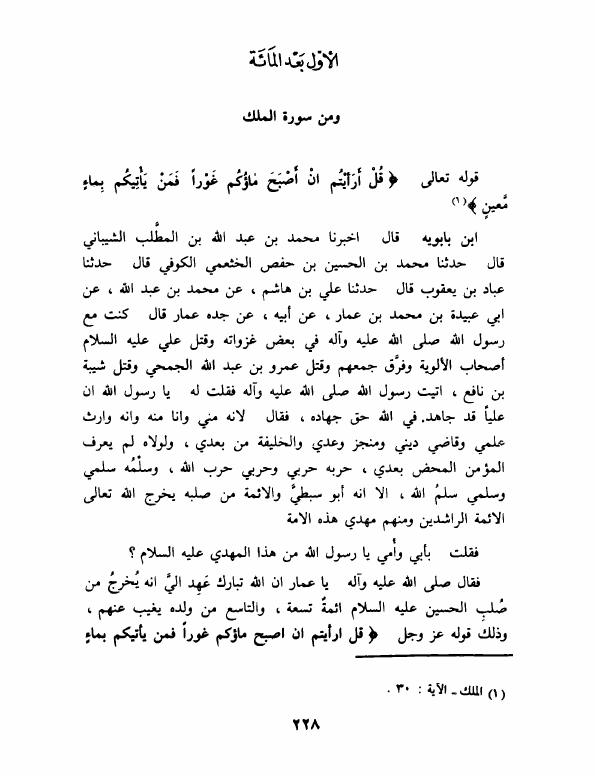 الاول بَعْد المَائَة
ومن سورة الملك
قوله تعالى ﴿ قُلْ أَرَأَيْتُم انْ أَصْبَحَ مٰاؤُكُم غَوْراً فَمَنْ يَأْتِيكُم بِماءٍ
مَّعينٍ ﴾(١)
ابن بابويه قال اخبرنا محمد بن عبد الله بن المطَّلب الشيباني
قال حدثنا محمد بن الحسين بن حفص الخثعمي الكوفي قال حدثنا
عباد بن يعقوب قال حدثنا علي بن هاشم ، عن محمد بن عبد الله ، عن
ابي عبيدة بن محمد بن عمار ، عن أبيه ، عن جده عمار قال كنت مع
رسول الله صلى الله عليه وآله في بعض غزواته وقتل علي عليه السلام
أصحاب الألوية وفرَّق جمعهم وقتل عمرو بن عبد الله الجمحي وقتل شيبة
بن نافع ، اتيت رسول الله صلى الله عليه وآله فقلت له يا رسول الله ان
علياً قد جاهد. في الله حق جهاده ، فقال لانه مني وانا منه وانه وارث
علمي وقاضي ديني ومنجز وعدي والخليفة من بعدي ، ولولاه لم يعرف
المؤمن المحض بعدي ، حربه حربي وحربي حرب الله ، وسلْمُه سلمي
وسلمي سلمُ الله ، الا انه أبو سبطيَّ والائمة من صلبه يخرج الله تعالى
الائمة الراشدين ومنهم مهدي هذه الامة
فقلت بأبي وأُمي يا رسول الله من هذا المهدي عليه السلام ؟
فقال صلى الله عليه وآله يا عمار ان الله تبارك عَهِد اليَّ انه يُخرجُ من
صُلبِ الحسين عليه السلام ائمةً تسعة ، والتاسع من ولده يغيب عنهم ،
وذلك قوله عز وجل ﴿ قل ارأيتم ان اصبح ماؤكم غوراً فمن يأتيكم بماءٍ
(١) الملك ـ الآية : ٣٠ .
٢٢٨